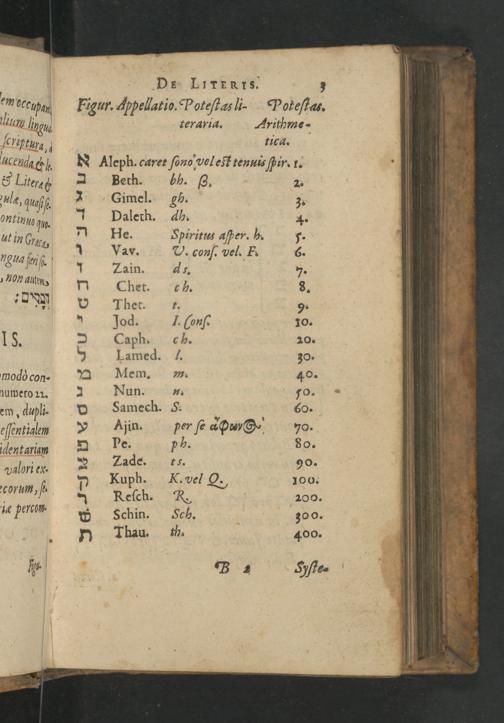 em occupan
alium lingua
scriptura,
ducenda & le-
& Literæ &
gulæ, quasi se-
ontinuo quo-
ut in Græca,
ngua fieri so-
, non autem,
הברים׃
IS.
modò con-
numero 22.
em, dupli-
essentialem
identariam
valori ex-
ecorum, se-
riæ percom-
Figu-
DE LITERIS. 3
Figur. Appellatio. Potestas li- Potestas.
teraria. Arithme-
tica.
א Aleph. caret sono vel est tenuis spir. 1.
ב Beth. bh. ß. 2.
ג Gimel. gh. 3.
ד Daleth. dh. 4.
ה He. Spiritus asper. h. 5.
ו Vav. V. cons. vel. F. 6.
ז Zain. ds. 7.
ח Chet. ch. 8.
ט Thet. t. 9.
י Jod. I. Cons. 10.
כ Caph. ch. 20.
ל Lamed. l. 30.
מ Mem. m. 40.
נ Nun. n. 50.
ס Samech. S. 60.
ע Ajin. per se ἄφων@ 70.
פ Pe. ph. 80.
צ Zade. ts. 90.
ק Kuph. K. vel Q. 100.
ר Resch. R. 200.
ש Schin. Sch. 300.
ת Thau. th. 400.
B 2 Syste-